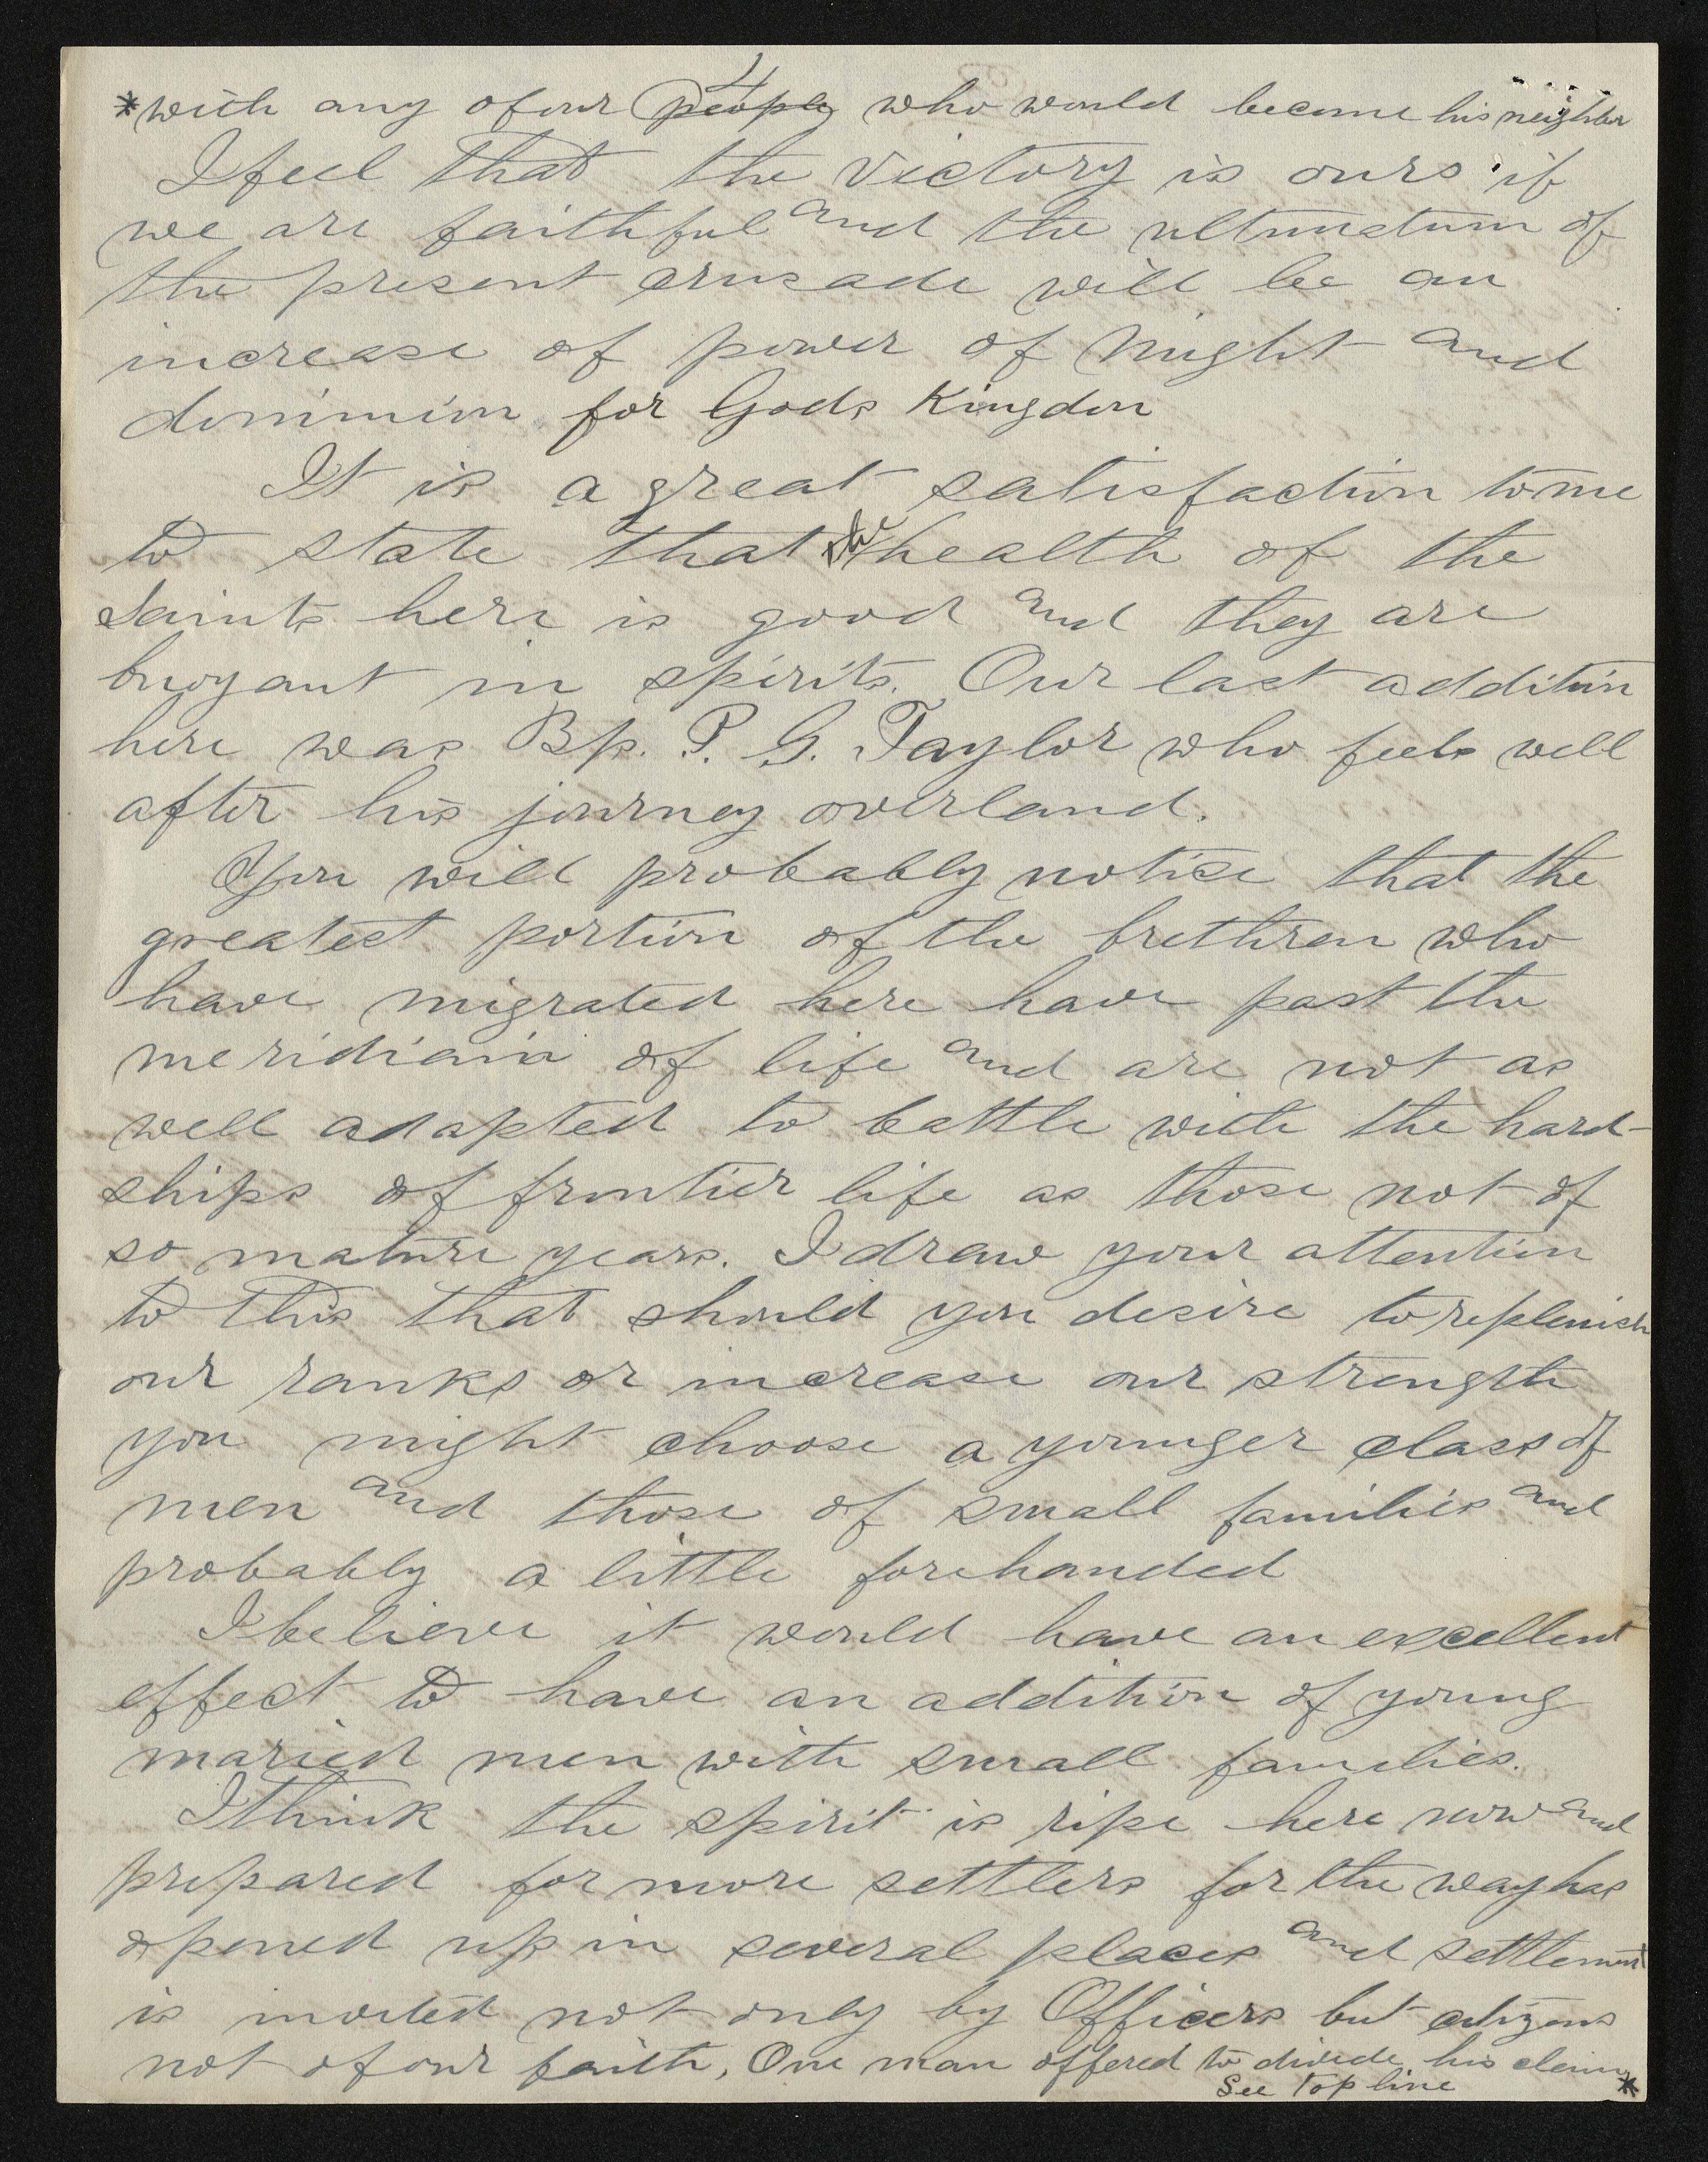 4
*with any of our people who would become his neighbor
I feel that the victory is ours if
we are faithful and the ultimatum of
the present crusade will be an
increase of power of might and
dominion for Gods Kingdom
It is a great satisfaction to me
to state that the health of the
Saints here is good and they are
buoyant in spirits. Our last addition
here was Bp. P. G. Taylor who feels well
after his journey overland.
You will probably notice that the
greatest portion of the brethren who
have migrated here have past the
meridiain of life and are not as
well adapted to battle with the hard-
ships of frontier life as those not of
so mature years. I draw your attention
to this that should you desire to replenish
our ranks or increase our strength
you might choose a younger class of
men and those of small families and
probably a little forehanded
I believe it would have an excellent
effect to have an addition of young
maried men with small families.
I think the spirit is ripe here now and
prepared for more settlers for the way has
opened up in several places and settlement
is invited not only by Officers but citizens
not of our faith. One man offered to divide his claim
See top line *